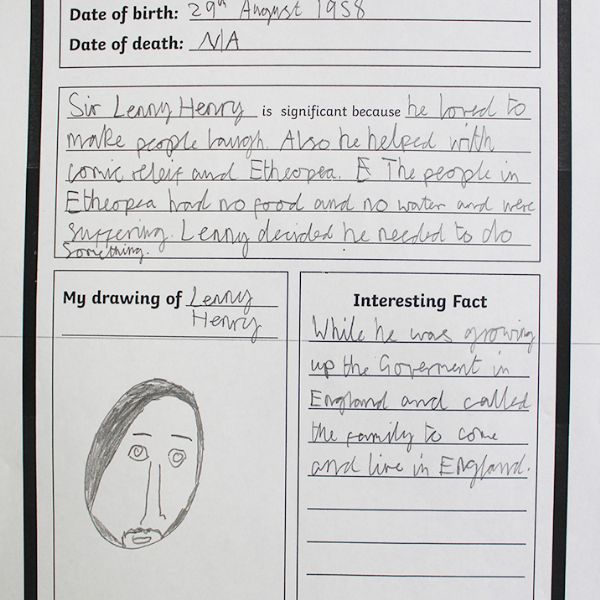 Date of birth: 29th August 1958
Date of death: N/A
Sir Lenny Henry is significant because he loved to
make people laugh. Also he helped with
comic releif and Etheopea. E The people in
Etheopea had no food and no water and were
suffering. Lenny decided he needed to do
something.
My drawing of Lenny
Henry
Interesting Fact
While he was growing
up the Goverment in
England and called
the family to come
and live in England.